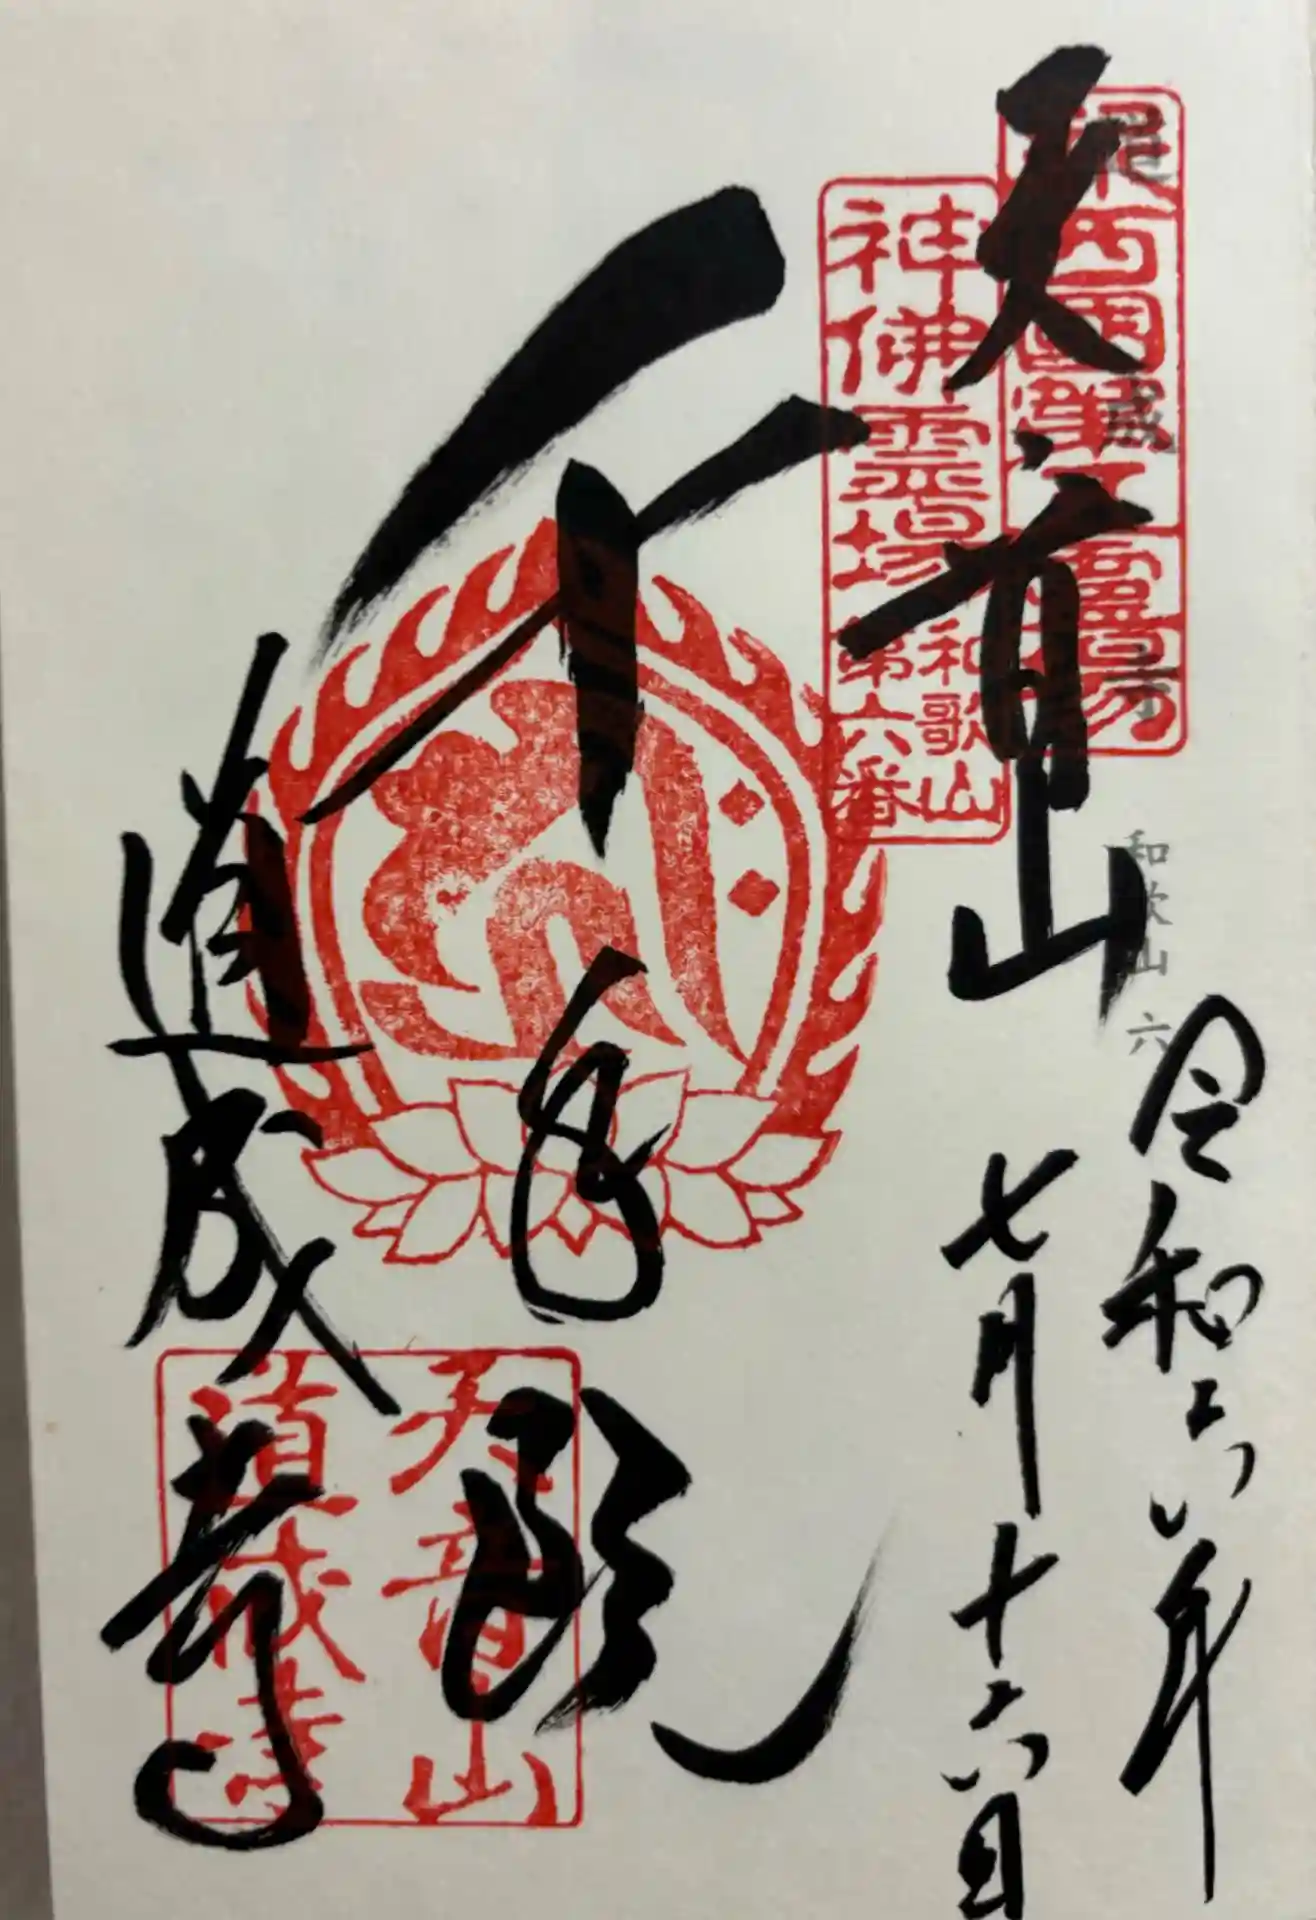 天音山
道成寺
和歌山 六
令和六年
七月十六日
神佛霊場
和歌山
第六番
千手殿
道成寺
天音山
道成寺